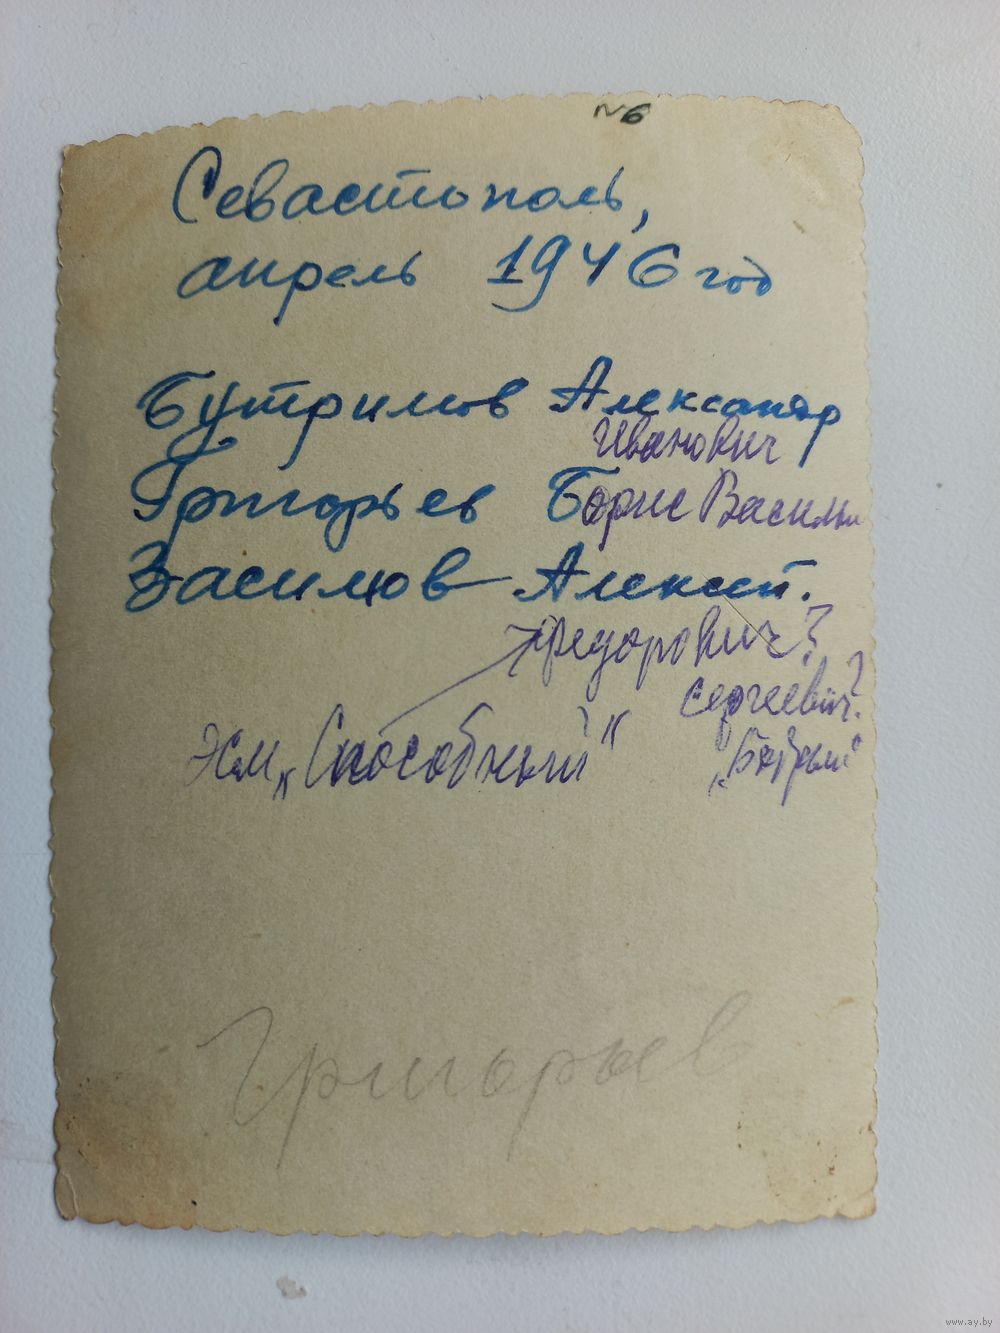 N6
Севастополь,
апрель 1946 год
Бутримов Александр
Иванович
Григорьев Борис Василь
Засимов Алексест.
Федорович?
Сергеевич?
Эсм „Способный“
„Бодрый“
Григорьев
www.ay.by